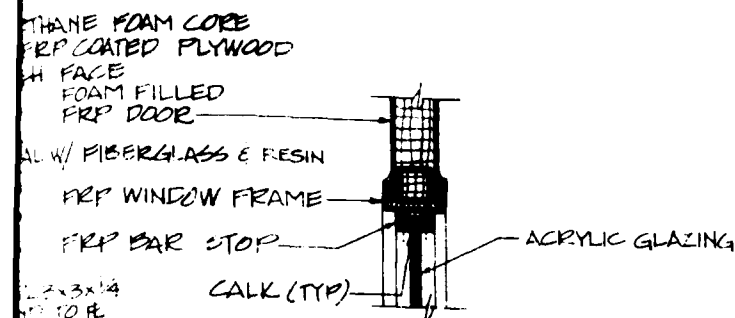 THANE FOAM CORE
FRP COATED PLYWOOD
H FACE
FOAM FILLED
FRP DOOR
AL W/ FIBERGLASS & RESIN
FRP WINDOW FRAME
FRP BAR STOP
ACRYLIC GLAZING
CALK (TYP)
3x3x1/4
TO PL